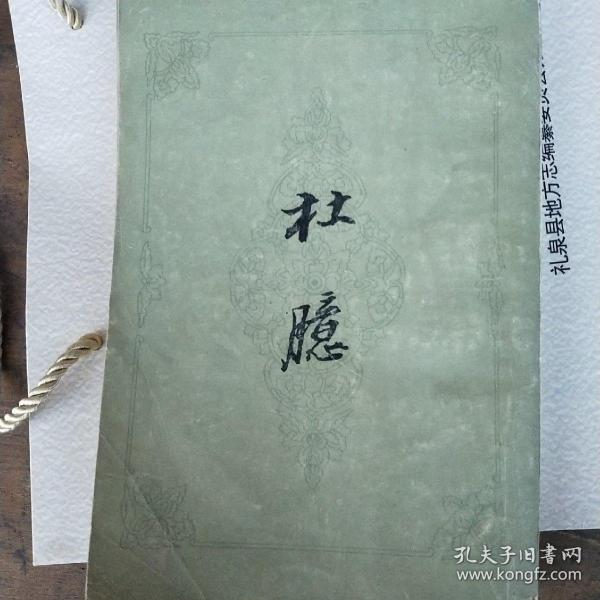 杜
臆
礼泉县地方志编纂委员会
孔夫子旧书网
www.kongfz.com